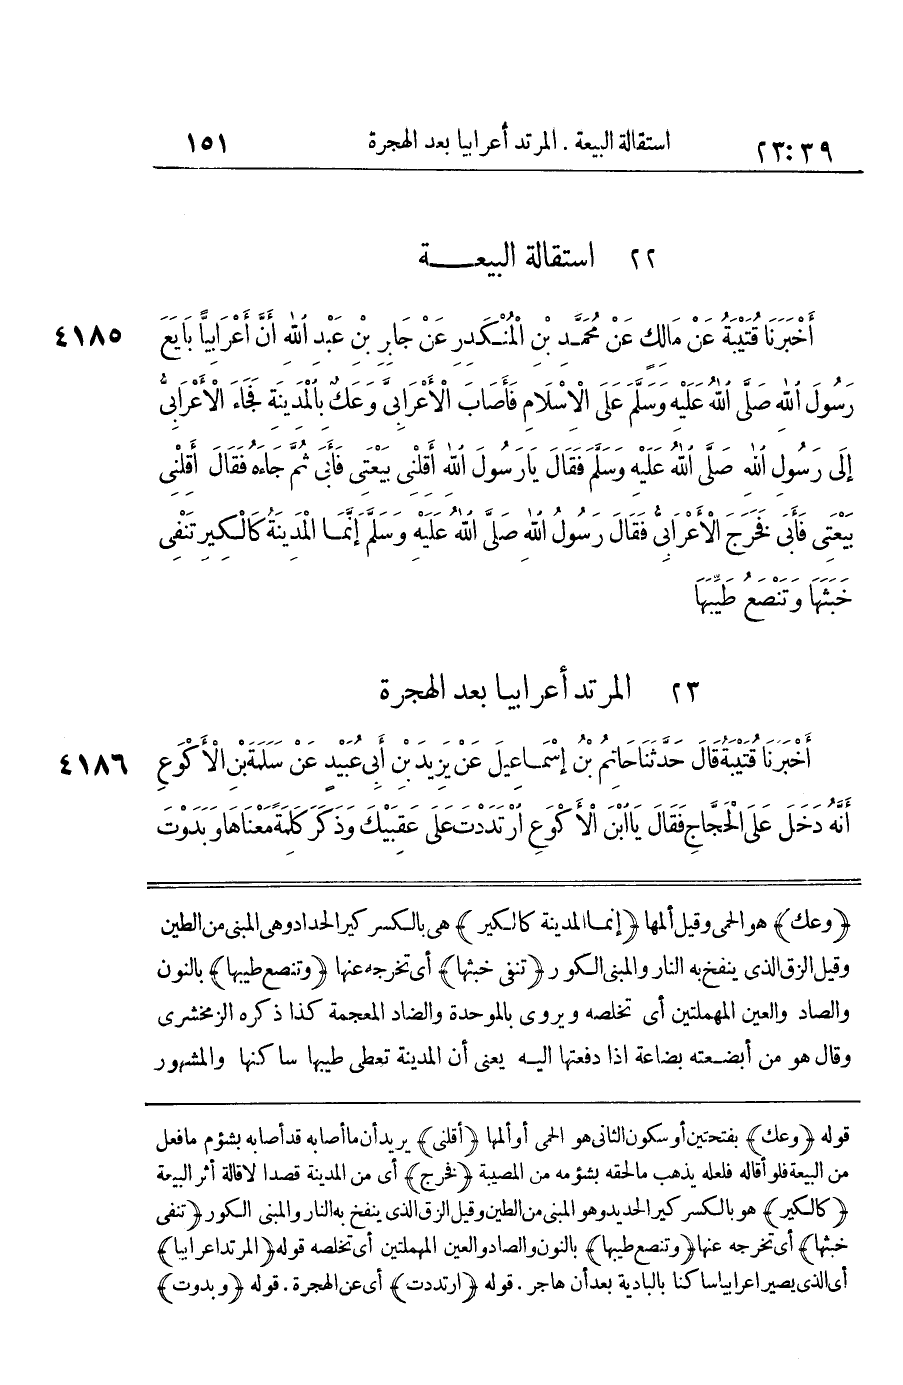 ٢٣:٣٩ استقالة البيعة . المرتد أعرابيا بعد الهجرة ١٥١
٢٢ استقالة البيعـــة
أَخْبَرَنَا قُتَيْبَةُ عَنْ مَالِكٍ عَنْ مُحَمَّدِ بْنِ الْمُنْكَدِرِ عَنْ جَابِرِ بْنِ عَبْدِ اللهِ أَنَّ أَعْرَابِياً بَايَعَ ٤١٨٥
رَسُولَ اللهِ صَلَّى اللهُ عَلَيْهِ وَسَلَّمَ عَلَى الْإِسْلَامِ فَأَصَابَ الْأَعْرَابِيَّ وَعَكٌ بِالْمَدِينَةِ فَجَاءَ الْأَعْرَابِيُّ
إِلَى رَسُولِ اللهِ صَلَّى اللهُ عَلَيْهِ وَسَلَّمَ فَقَالَ يَارَسُولَ اللهِ أَقِلْنِي بَيْعَتِي فَأَبَى ثُمَّ جَاءَهُ فَقَالَ أَقِلْنِي
بَيْعَتِي فَأَبَى فَخَرَجَ الْأَعْرَابِيُّ فَقَالَ رَسُولُ اللهِ صَلَّى اللهُ عَلَيْهِ وَسَلَّمَ إِنَّمَا الْمَدِينَةُ كَالْكِيرِ تَنْفِي
خَبَثَهَا وَتَنْصَعُ طَيِّبَهَا
٢٣ المرتد أعرابيا بعد الهجرة
أَخْبَرَنَا قُتَيْبَةُ قَالَ حَدَّثَنَا حَاتِمُ بْنُ إِسْمَاعِيلَ عَنْ يَزِيدَ بْنِ أَبِي عُبَيْدٍ عَنْ سَلَمَةَ بْنِ الْأَكْوَعِ ٤١٨٦
أَنَّهُ دَخَلَ عَلَى الْحَجَّاجِ فَقَالَ يَا ابْنَ الْأَكْوَعِ ارْتَدَدْتَ عَلَى عَقِبَيْكَ وَذَكَرَ كَلِمَةً مَعْنَاهَا وَبَدَوْتَ
﴿وعك﴾ هو الحمى وقيل ألمها ﴿إنما المدينة كالكير﴾ هى بالكسر كير الحداد وهى المبنى من الطين
وقيل الزق الذى ينفخ به النار والمبنى الكور ﴿تنفى خبثها﴾ أى تخرجه عنها ﴿وتنصع طيبها﴾ بالنون
والصاد والعين المهملتين أى تخلصه ويروى بالموحدة والضاد المعجمة كذا ذكره الزمخشرى
وقال هو من أبضعته بضاعة اذا دفعتها اليه يعنى أن المدينة تعطى طيبها ساكنها والمشهور
قوله ﴿وعك﴾ بفتحتين أو سكون الثانى هو الحمى أو ألمها ﴿أقلنى﴾ يريد أن ما أصابه قد أصابه بشؤم ما فعل
من البيعة فلو أقاله فلعله يذهب ما لحقه بشؤمه من المصيبة ﴿فخرج﴾ أى من المدينة قصدا لاقالة أثر البيعة
﴿كالكير﴾ هو بالكسر كير الحديد وهو المبنى من الطين وقيل الزق الذى ينفخ به النار والمبنى الكور ﴿تنفى
خبثها﴾ أى تخرجه عنها ﴿وتنصع طيبها﴾ بالنون والصاد والعين المهملتين أى تخلصه قوله ﴿المرتد اعرابيا﴾
أى الذى يصير اعرابيا ساكنا بالبادية بعد أن هاجر . قوله ﴿ارتددت﴾ أى عن الهجرة . قوله ﴿وبدوت﴾